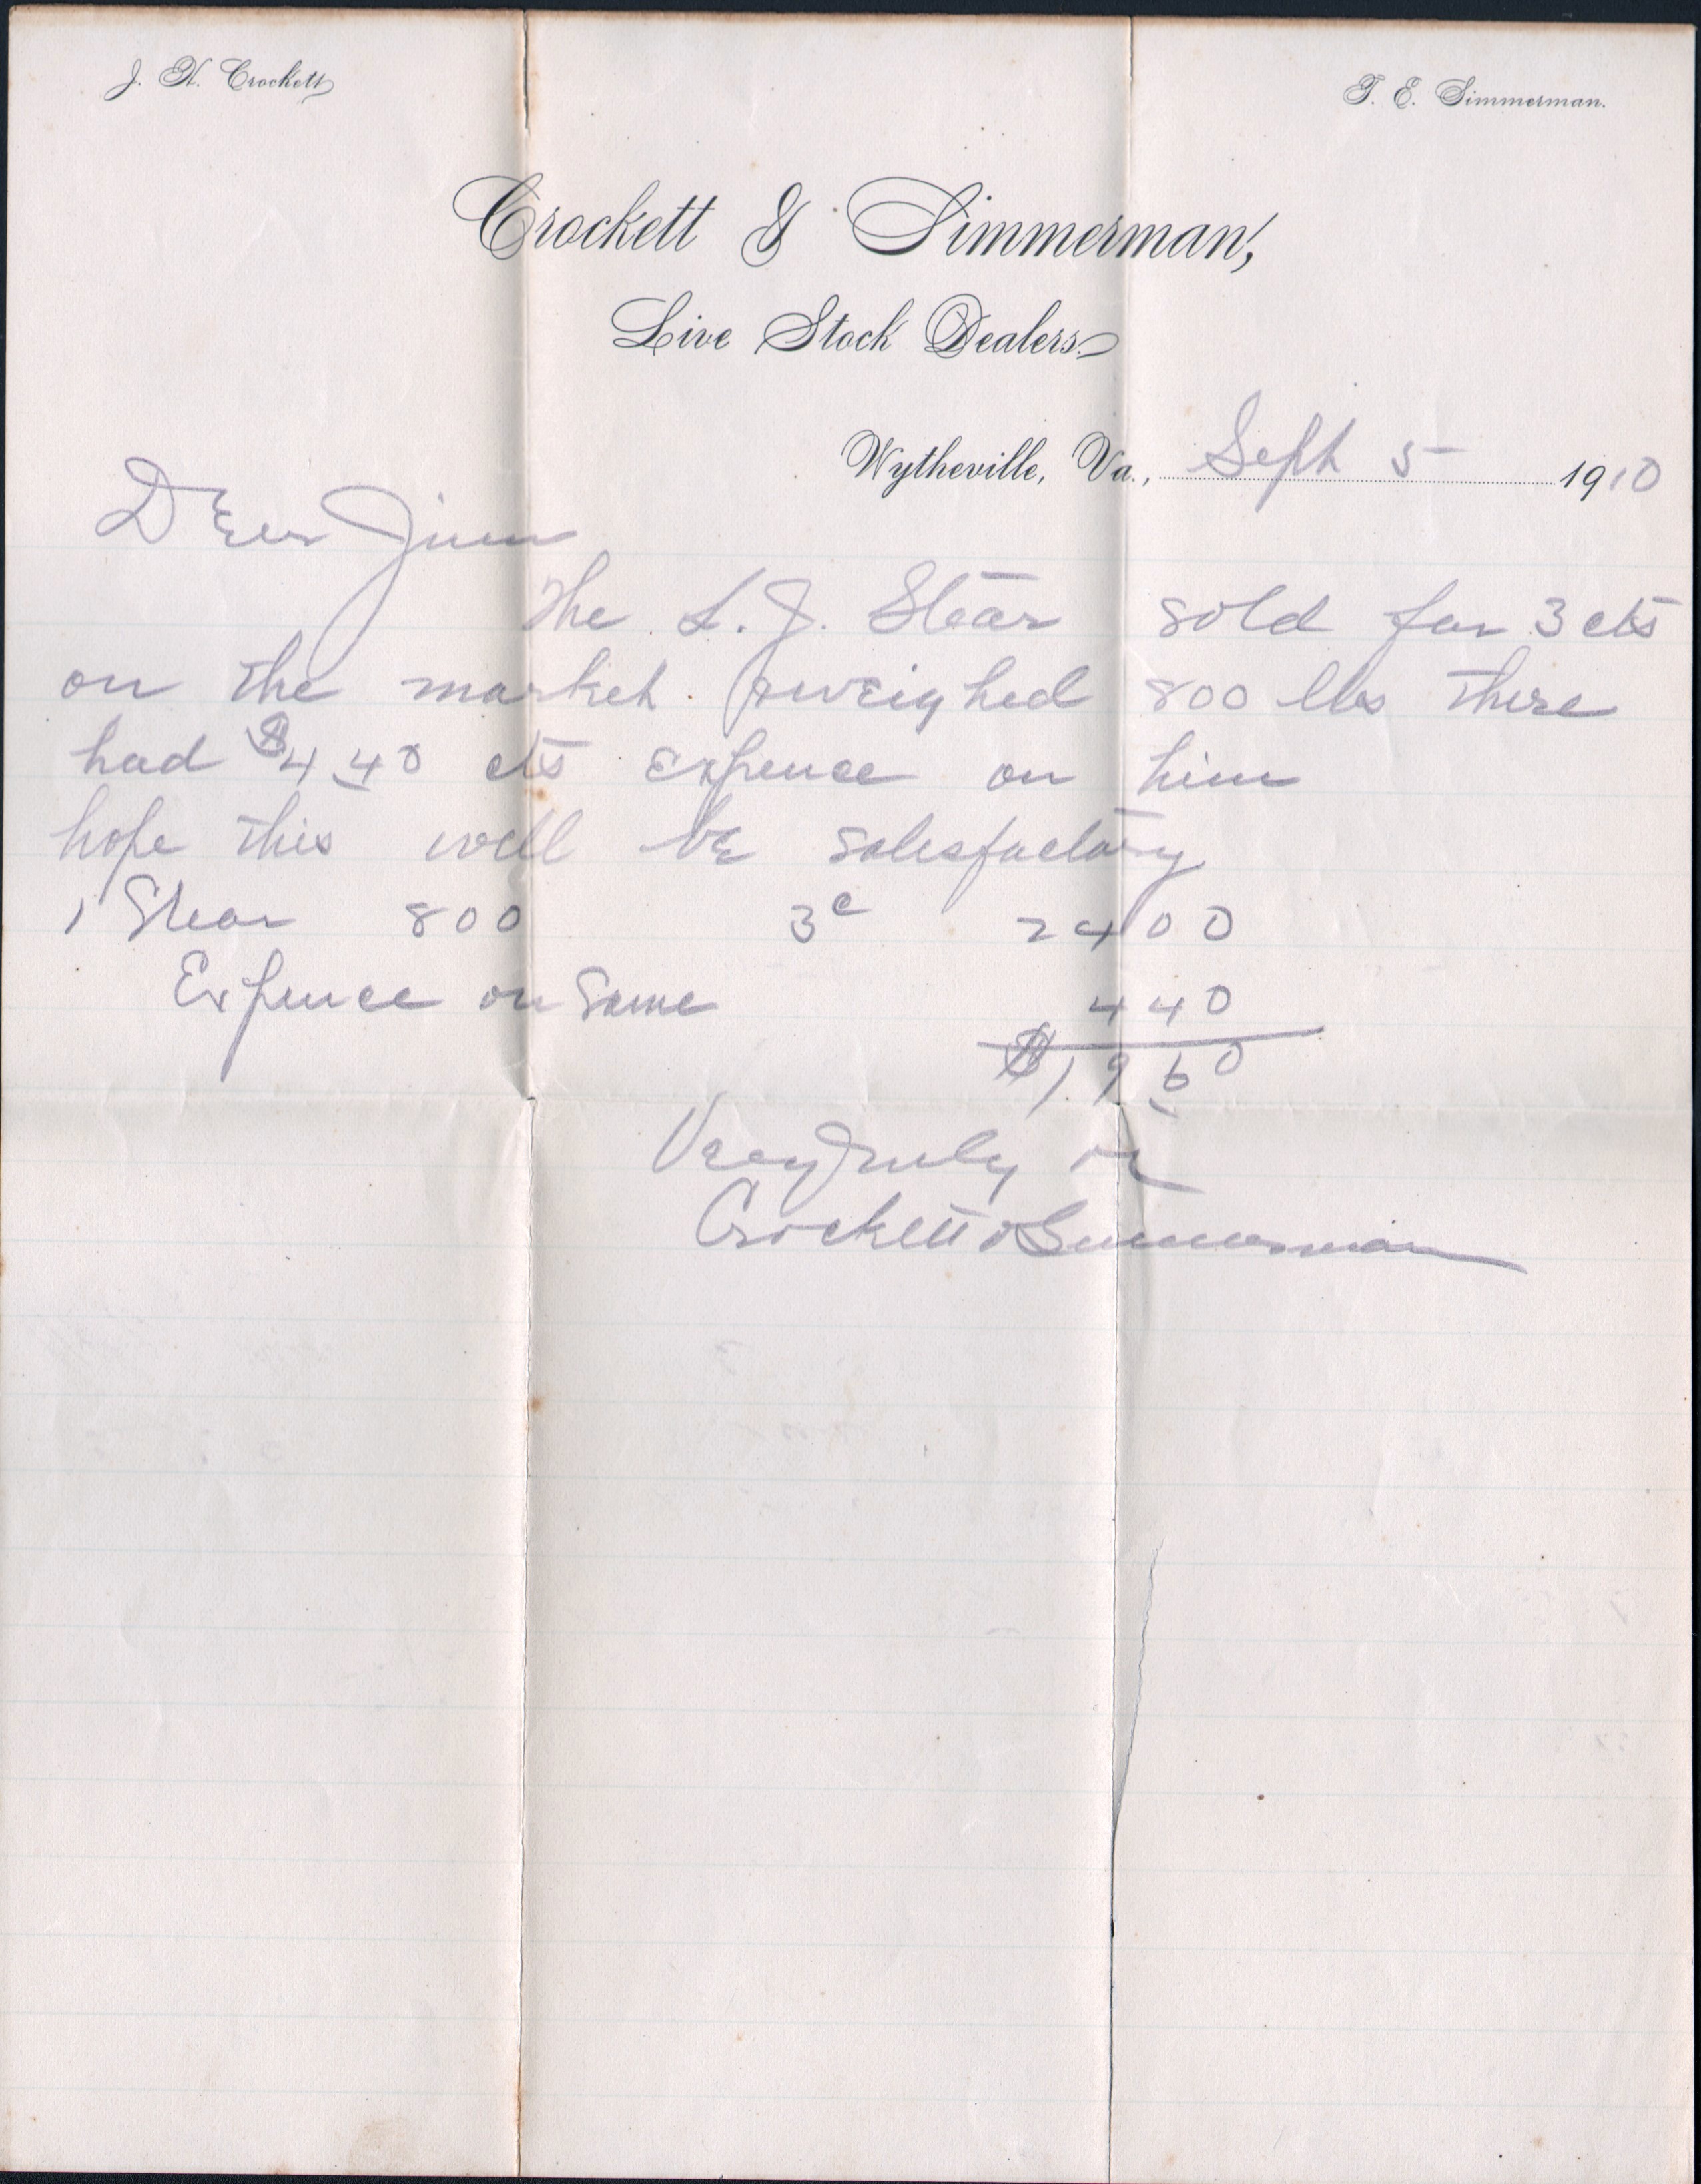 J. N. Crockett
T. E. Simmerman.
Crockett & Simmerman,
Live Stock Dealers.
Wytheville, Va., Sept 5 1910
Dear Jim
The L. J. Stear sold for 3 cts
on the market & weighed 800 lbs there
had $4 40 cts Expence on him
hope this will be satesfactory
1 Stear 800 3c 2400
Expence on Same 440
$1960
Very Truly
Crockett & Simmerman